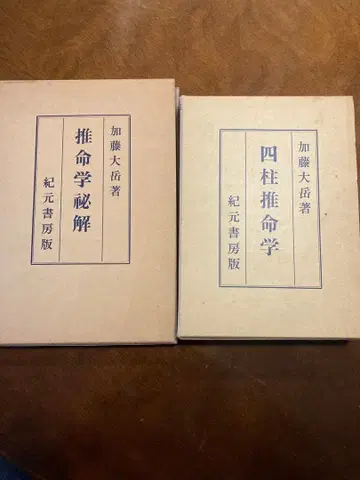 加藤大岳著
推命学祕解
紀元書房版
加藤大岳著
四柱推命学
紀元書房版